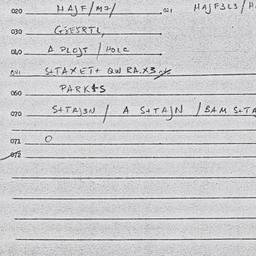 020 HAJF/MJ/ 021 HAJF3L3/H
030 GJESRTL,
040 A PLOJT / HOLE
041 S+TAXET+ QW RA.X3
060 PARK+S
070 S+TAJ3N / A S+TAJN / BAM S+TA
071 O
072